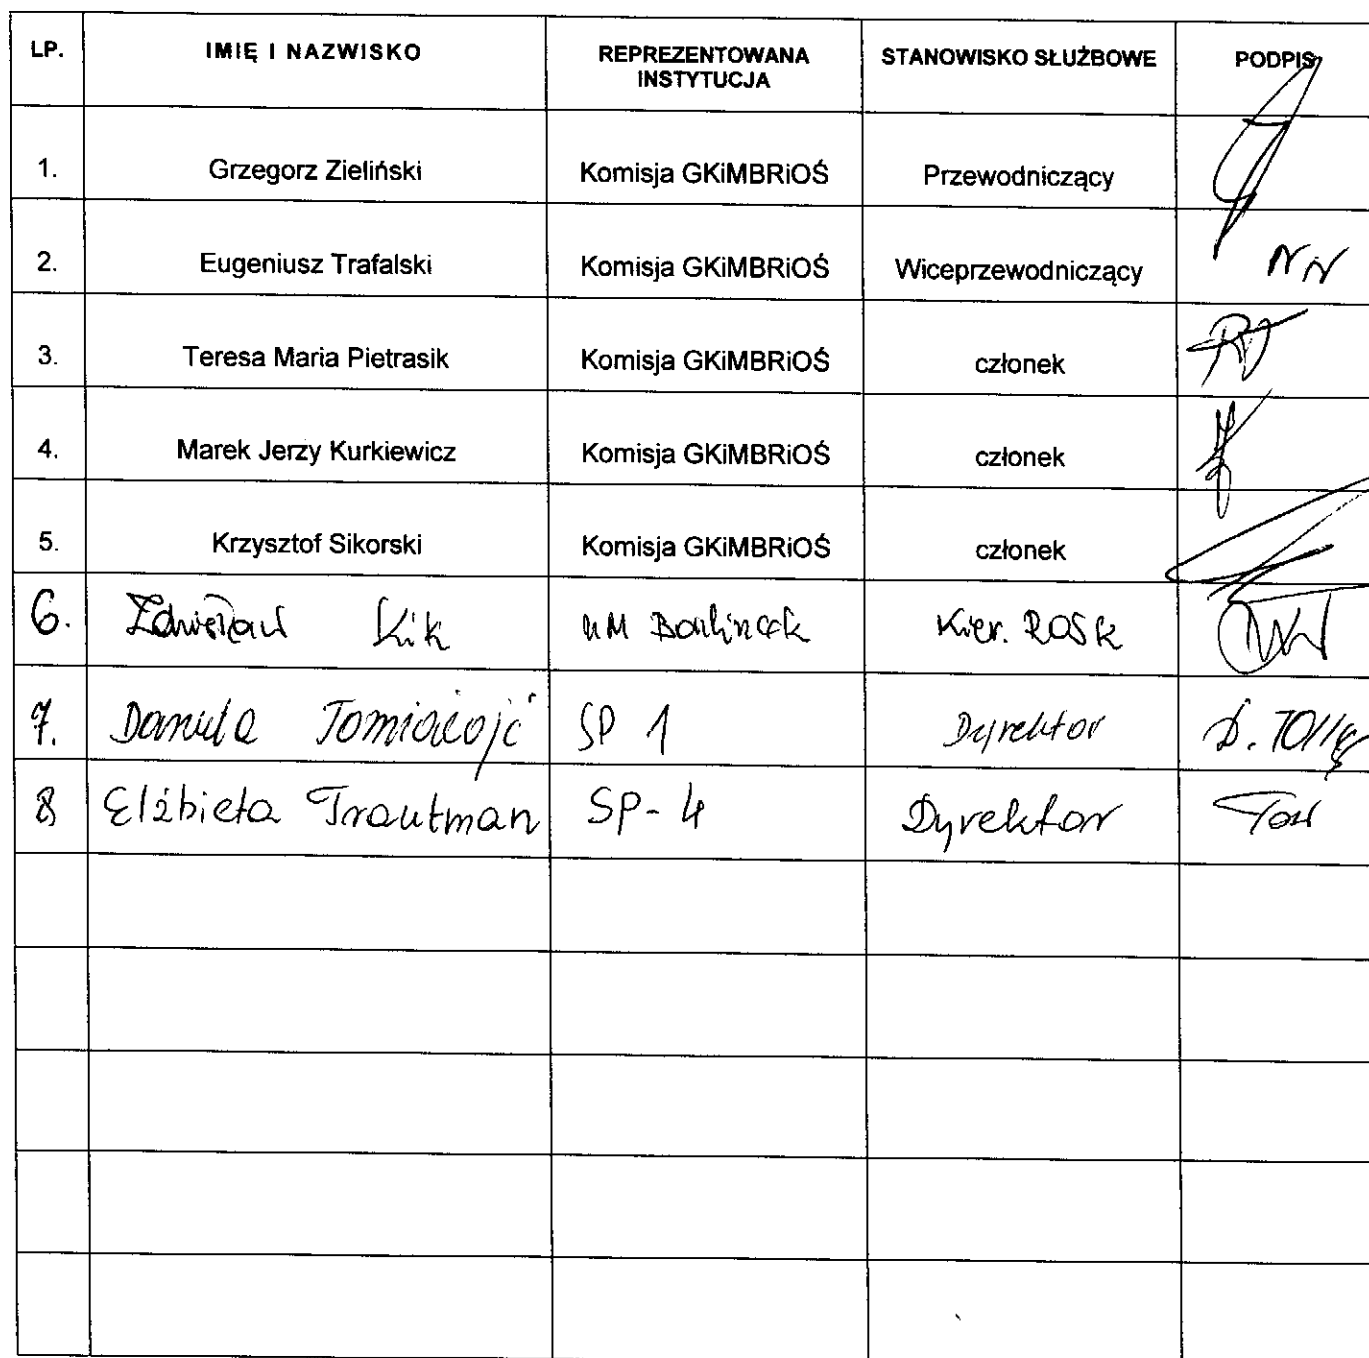 LP. IMIĘ I NAZWISKO REPREZENTOWANA INSTYTUCJA STANOWISKO SŁUŻBOWE PODPIS
1. Grzegorz Zieliński Komisja GKiMBRiOŚ Przewodniczący
2. Eugeniusz Trafalski Komisja GKiMBRiOŚ Wiceprzewodniczący NN
3. Teresa Maria Pietrasik Komisja GKiMBRiOŚ członek
4. Marek Jerzy Kurkiewicz Komisja GKiMBRiOŚ członek
5. Krzysztof Sikorski Komisja GKiMBRiOŚ członek
6. Zdzisław Kik UM Barlinek Kier.
7. Danuta SP 1 Dyrektor
8 Elżbieta Trautman SP-4 Dyrektor